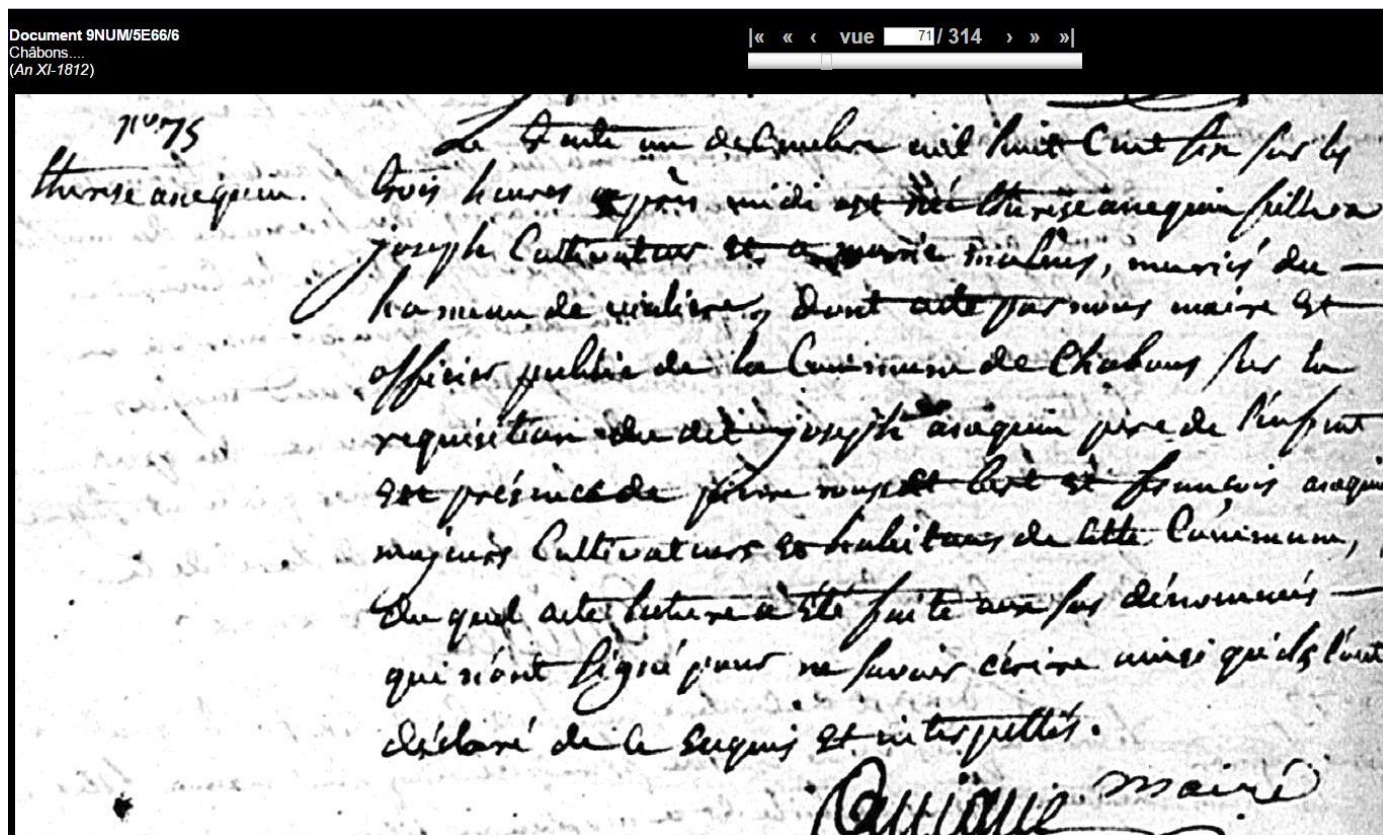 Document 9NUM/5E66/6
Châbons....
(An XI-1812)
|« « ‹ vue 71 / 314 › » »|
n° 75
therese anequin.
Le trente un decembre mil huit Cent six sur les
trois heures après midi est né therese anequin fille a
joseph Cultivateur et a marie, mariés du
hameau de, dont acte par nous maire et
officier public de la Commune de Chabons sur la
requisition du dit joseph anequin pere de l'enfant
en présence de pierre et françois anequin
majeurs Cultivateurs et habitans de cette Commune,
du quel acte lecture a été faite aux sus dénommés
qui n'ont signé pour ne savoir écrire ainsi qu'ils l'ont
déclaré de ce enquis et interpellés.
maire